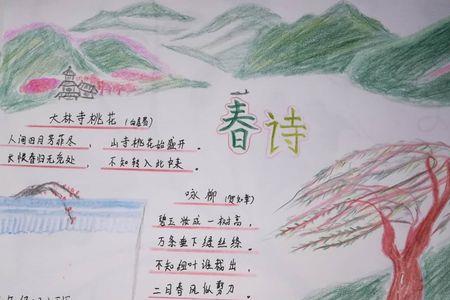 春诗
大林寺桃花（白居易）
人间四月芳菲尽， 山寺桃花始盛开。
长恨春归无觅处， 不知转入此中来。
咏柳（贺知章）
碧玉妆成一树高，
万条垂下绿丝绦。
不知细叶谁裁出，
二月春风似剪刀。